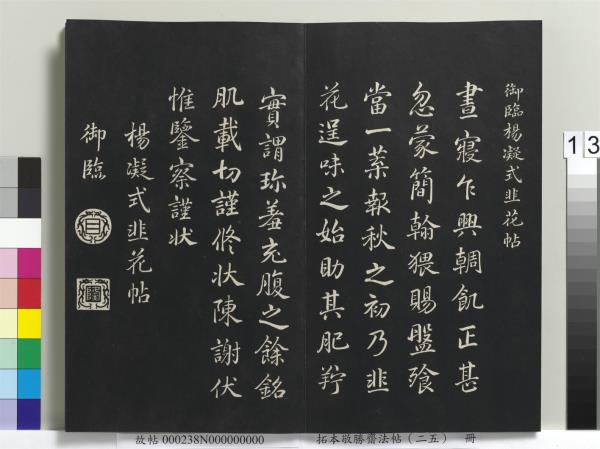 御臨楊凝式韭花帖
晝寢乍興輖飢正甚
忽蒙簡翰猥賜盤飧
當一葉報秋之初乃韭
花逞味之始助其肥羜
實謂珍羞充腹之餘銘
肌載切謹修狀陳謝伏
惟鑒察謹狀
楊凝式韭花帖
御臨
故帖 000238N000000000
拓本敬勝齋法帖（二五） 冊
13